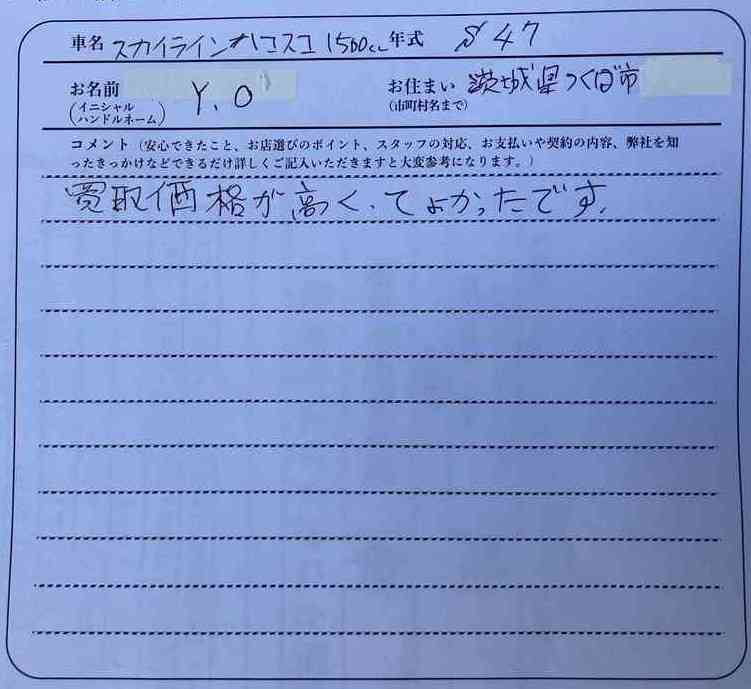 車名 スカイラインハコスコ 1500cc 年式 S47
お名前 (イニシャル ハンドルネーム) Y.O お住まい (市町村名まで) 茨城県つくば市
コメント(安心できたこと、お店選びのポイント、スタッフの対応、お支払いや契約の内容、弊社を知
ったきっかけなどできるだけ詳しくご記入いただきますと大変参考になります。)
買取価格が高く、てよかったです。